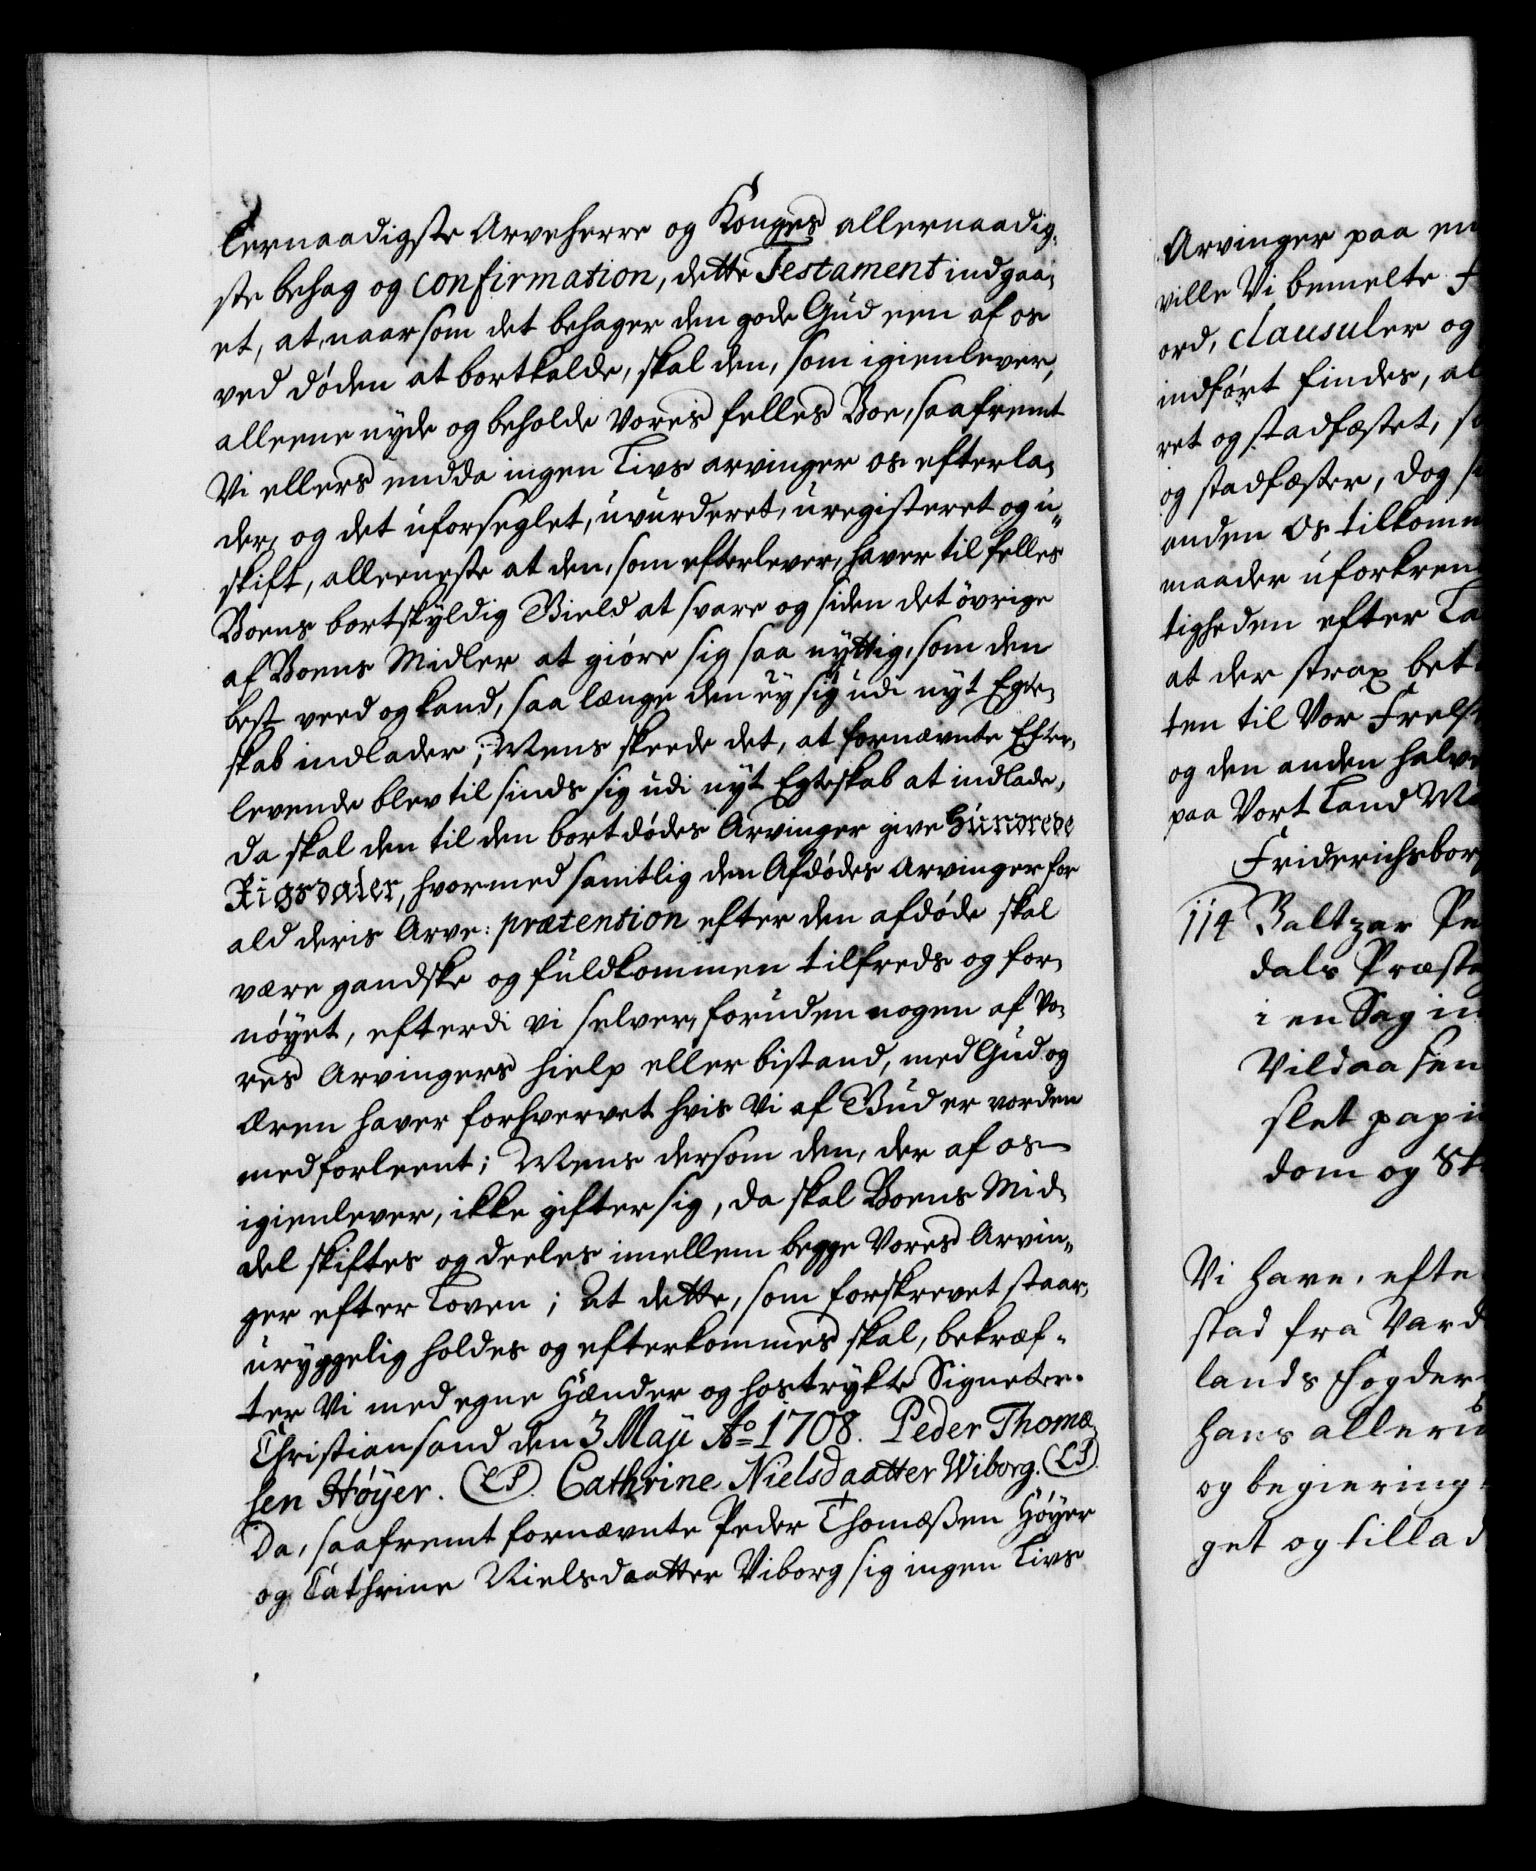 lernaadigste Arveherre og Konges allernaadig-
ste behag og confirmation, dette Testament indgaa-
et, at, naarsom det behager den gode Gud een af os
ved døden at bortkalde, skal den, som igienlever,
alleene nyde og beholde Vores felles Boe, saafremt
Vi ellers endda ingen Livs arvinger os efterla-
der, og det uforseglet, uvurderet, uregisteret og u-
skift, alleeneste at den, som efterlever, haver til felles
Boens bortskyldig Gield at svare og siden det øvrige
af Boens Midler at giøre sig saa nyttig, som den
best veed og kand, saa længe den ey sig udi nyt Egte-
skab indlader; Mens skeede det, at fornævnte Efter-
levende blev til sinds sig udi nyt Egteskab at indlade,
da skal den til den bortdødes Arvinger give Hundrede
Rigsdaler, hvormed samtlig den Afdødes Arvinger for
ald deris Arve: prætension efter den afdøde skal
være gandske og fuldkommen tilfreds og for-
nøyet, efterdi vi selver, foruden nogen af Vo-
res Arvingers hielp eller bistand, med Gud og
Æren haver forhvervet hvis Vi af Gud er vorden
medforleent; Mens dersom den, der af os
igienlever, ikke gifter sig, da skal Boens Mid-
del skiftes og deeles imellem begge Vores Arvin-
ger efter Loven; At dette, som forskrevet staar,
uryggelig holdes og efterkommes skal, bekræf-
ter Vi med egne Hænder og hostrykte Signeter.
Christiansand den 3 Maji Ao 1708. Peder Thomæ-
sen Høyer. (LS). Cathrine Nielsdaatter Wiborg. (LS).
Da, saafremt fornævnte Peder Thomæßen Høyer
og Cathrine Nielsdaatter Viborg sig ingen Livs
Arvinger paa en
ville Vi bemelte
ord, clausuler og
indført findes, al
ret og stadfæstet, s
og stadfæster, dog
anden Os tilkomm
maader uforkren
tigheden efter La
at der strax bet
ten til Vor Frels
og den anden halve
paa Vort Land
Friderichsborg
114 Baltzar Pe
dals Præste
i en Sag in
Vildaasen
slet papi
dom og
Vi have, efte
stad fra Vard
lands Fogder
hans alleru
og begiering
get og tillad